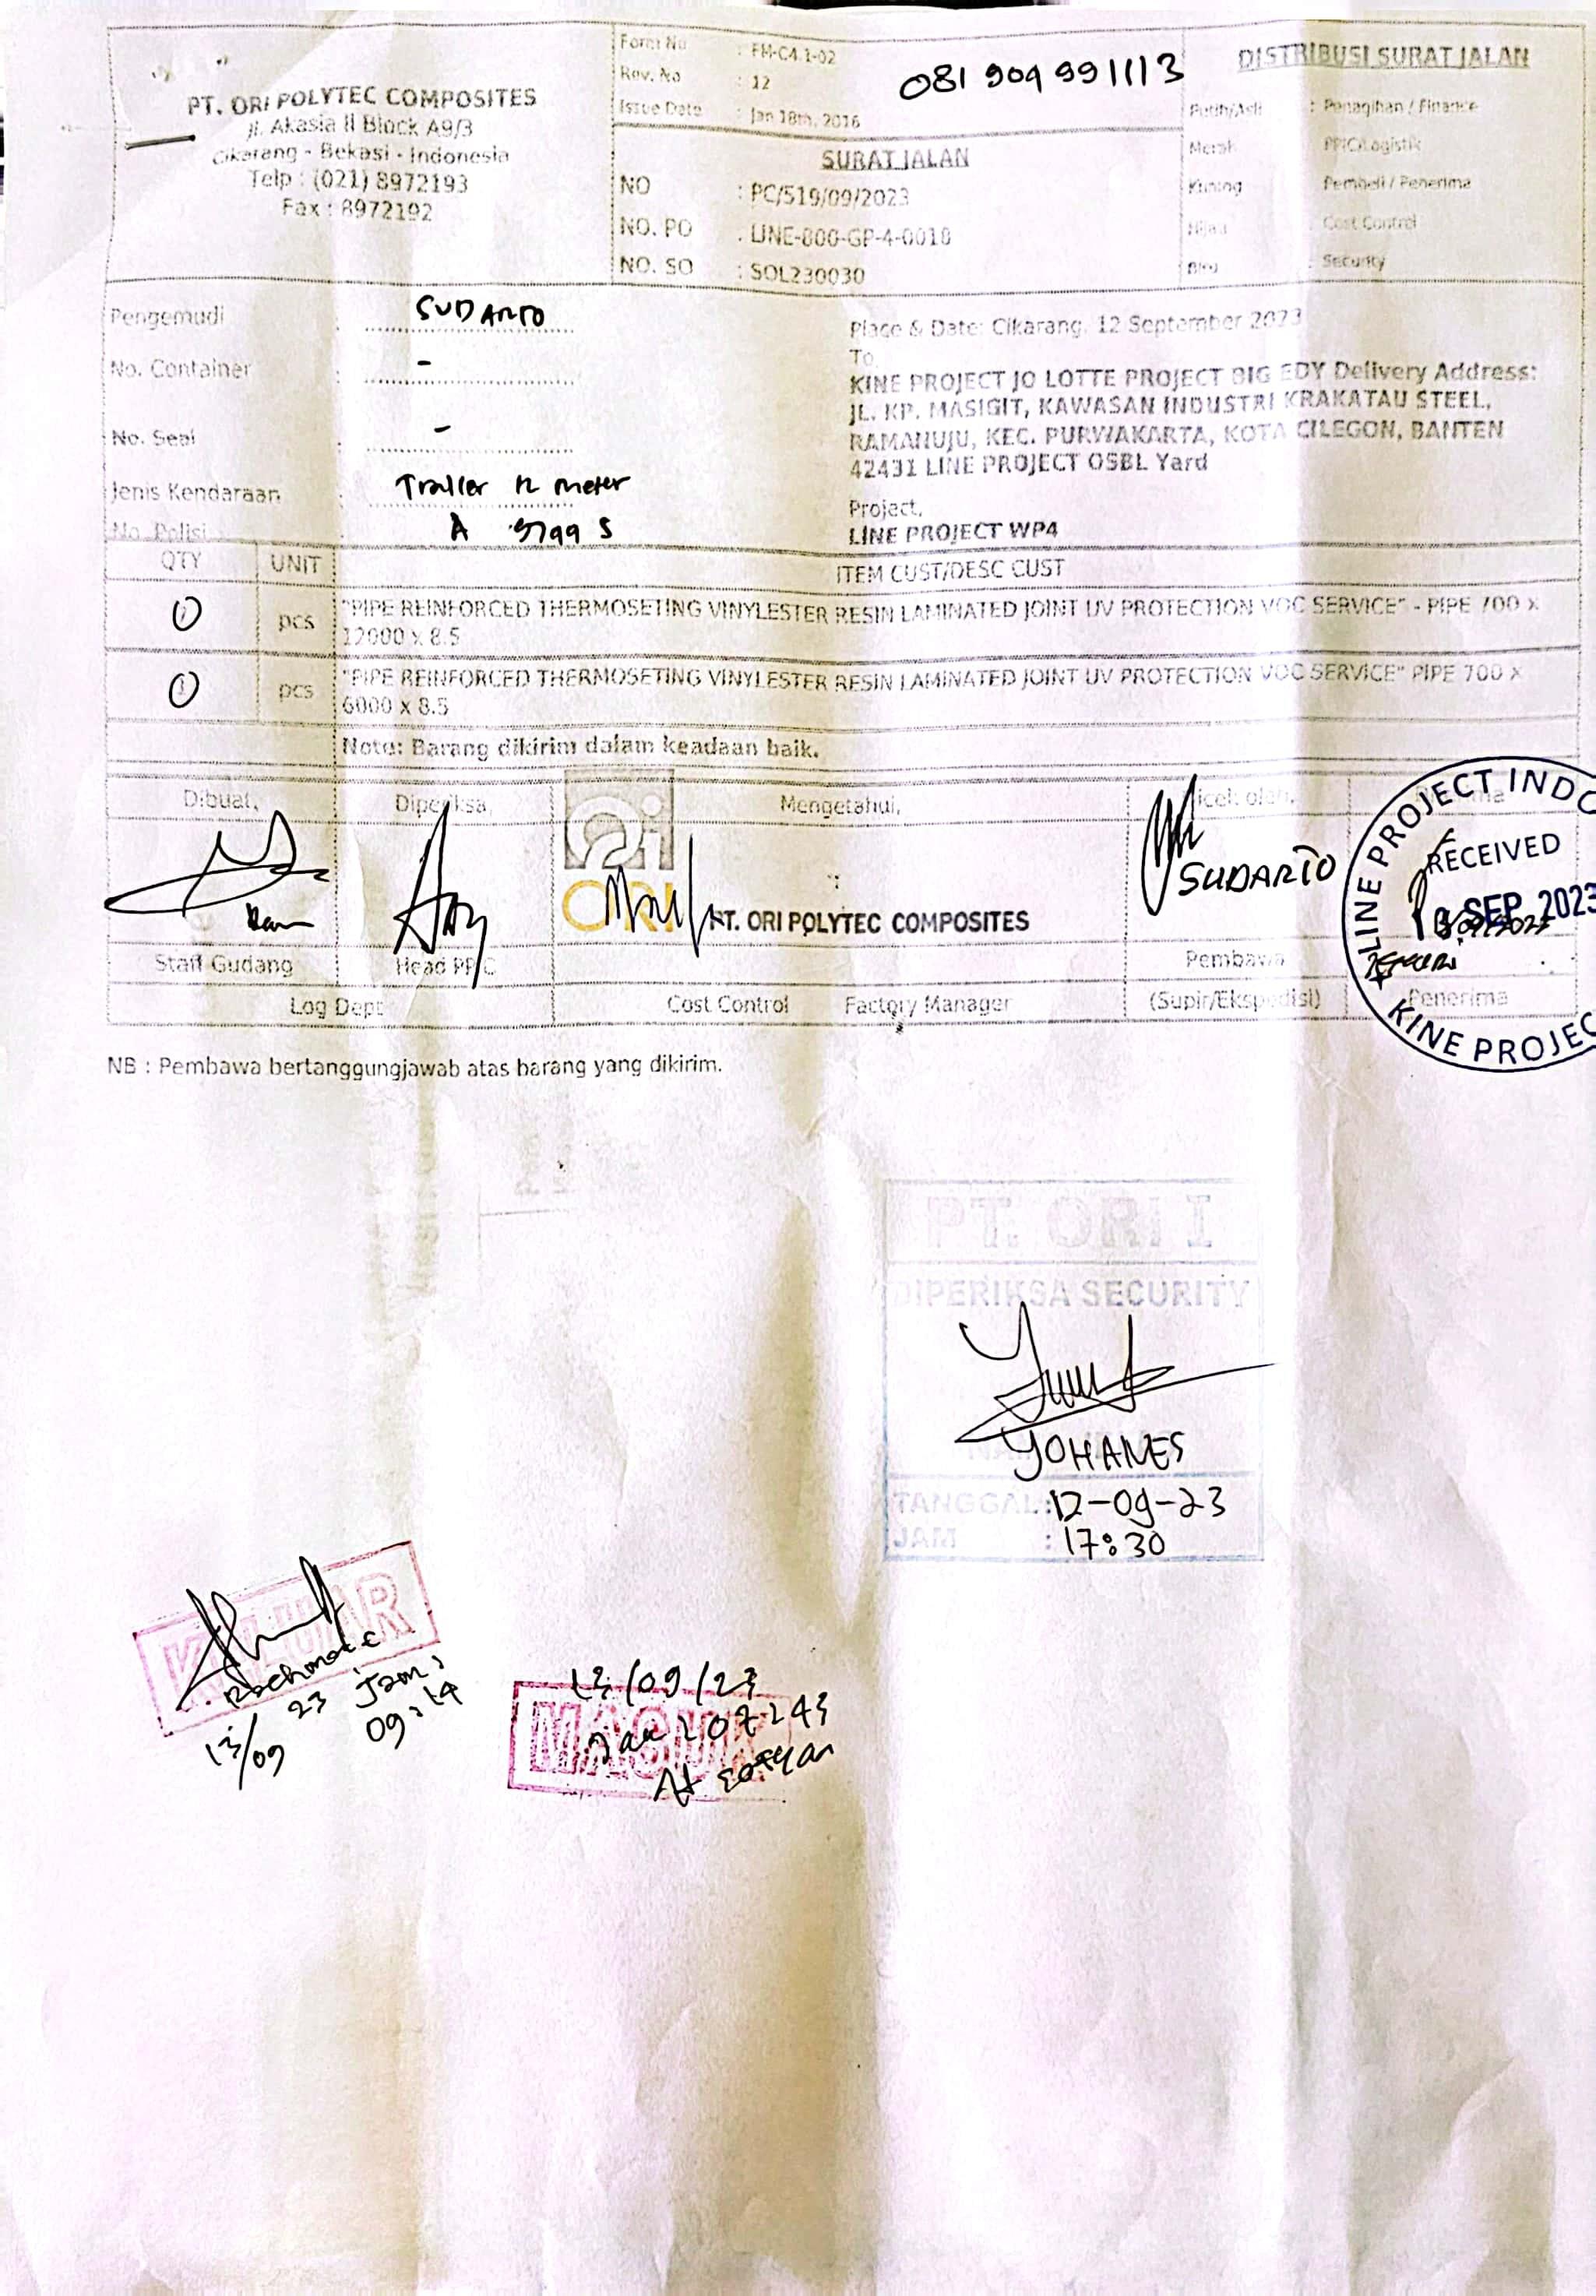 PT. ORI POLYTEC COMPOSITES
Jl. Akasia II Block A9/3
Cikarang - Bekasi - Indonesia
Telp : (021) 8972193
Fax : 8972192
Form No : FM-C4.1-02
Rev. No : 12
Issue Date : Jan 18th, 2016
081 909 991113
SURAT JALAN
NO : PC/519/09/2023
NO. PO : LINE-800-GP-4-0010
NO. SO : SOL230030
DISTRIBUSI SURAT JALAN
Putih/Asli : Penagihan / Finance
Merah PPIC/Logistik
Kuning Pembeli / Penerima
Hijau Cost Control
Biru : Security
Pengemudi : SUDARTO
No. Container : -
No. Seal : -
Jenis Kendaraan : Trailer 12 meter
No. Polisi : A 9799 S
Place & Date: Cikarang, 12 September 2023
To
KINE PROJECT JO LOTTE PROJECT BIG EDY Delivery Address:
JL. KP. MASIGIT, KAWASAN INDUSTRI KRAKATAU STEEL,
RAMANUJU, KEC. PURWAKARTA, KOTA CILEGON, BANTEN
42431 LINE PROJECT OSBL Yard
Project,
LINE PROJECT WP4
QTY UNIT ITEM CUST/DESC CUST
1 pcs "PIPE REINFORCED THERMOSETING VINYLESTER RESIN LAMINATED JOINT UV PROTECTION VOC SERVICE" - PIPE 700 x
12000 x 8.5
1 pcs "PIPE REINFORCED THERMOSETING VINYLESTER RESIN LAMINATED JOINT UV PROTECTION VOC SERVICE" PIPE 700 x
6000 x 8.5
Note: Barang dikirim dalam keadaan baik.
Dibuat, Diperiksa, Mengetahui, Dicek oleh,
ORI
PT. ORI POLYTEC COMPOSITES
SUDARTO
LINE PROJECT INDO
RECEIVED
SEP 2023
KINE PROJEC
Staff Gudang Head PPIC Pembawa
Log Dept Cost Control Factory Manager (Supir/Ekspedisi) Penerima
NB : Pembawa bertanggungjawab atas barang yang dikirim.
PT. ORI I
DIPERIKSA SECURITY
YOHANES
TANGGAL : 12-09-23
JAM : 17:30
KELUAR
13/09 23 Jam :
09:14
13/09/23
MASUK